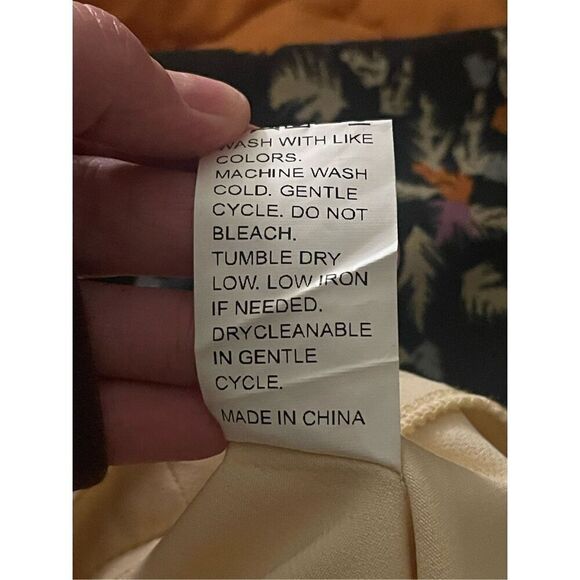 WASH WITH LIKE
COLORS.
MACHINE WASH
COLD. GENTLE
CYCLE. DO NOT
BLEACH.
TUMBLE DRY
LOW. LOW IRON
IF NEEDED.
DRYCLEANABLE
IN GENTLE
CYCLE.
MADE IN CHINA